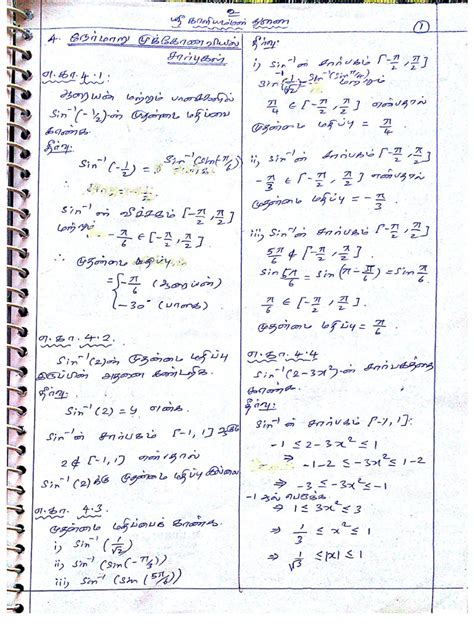 உ
ஸ்ரீ காளியம்மன் துணை
1
4. நேர்மாறு முக்கோணவியல்
சார்புகள்
எ.கா. 4.1:
ஆரையன் மற்றும் பாகைகளில்
Sin⁻¹(-½)-ன் முதன்மை மதிப்பை
காண்க.
தீர்வு:
Sin⁻¹(-1/2) = Sin⁻¹(Sin(-π/6))
Sin⁻¹ன் வீச்சகம் [-π/2, π/2]
மற்றும்
-π/6 ∈ [-π/2, π/2]
∴ முதன்மை மதிப்பு
= { -π/6 (ஆரையன்)
-30° (பாகை)
எ.கா. 4.2.
Sin⁻¹(2)ன் முதன்மை மதிப்பு
இருப்பின் அதனை கண்டறிக.
தீர்வு:
Sin⁻¹(2) = y என்க.
Sin⁻¹ன் சார்பகம் [-1, 1] ஆகும்
2 ∉ [-1, 1] என்பதால்
Sin⁻¹(2)க்கு முதன்மை மதிப்பு இல்லை
எ.கா. 4.3.
முதன்மை மதிப்பைக் காண்க.
i) Sin⁻¹(1/√2)
ii) Sin⁻¹(Sin(-π/3))
iii) Sin⁻¹(Sin(5π/6))
தீர்வு:
i) Sin⁻¹ன் சார்பகம் [-π/2, π/2]
Sin⁻¹(1/√2) = Sin⁻¹(Sin π/4) மற்றும்
π/4 ∈ [-π/2, π/2] என்பதால்
முதன்மை மதிப்பு = π/4
ii) Sin⁻¹ன் சார்பகம் [-π/2, π/2]
-π/3 ∈ [-π/2, π/2] என்பதால்
முதன்மை மதிப்பு = -π/3.
iii) Sin⁻¹ன் சார்பகம் [-π/2, π/2]
5π/6 ∉ [-π/2, π/2]
Sin 5π/6 = Sin(π - π/6) = Sin π/6
π/6 ∈ [-π/2, π/2]
முதன்மை மதிப்பு = π/6
எ.கா. 4.4
Sin⁻¹(2-3x²)-ன் சார்பகத்தை
காண்க.
தீர்வு:
Sin⁻¹ன் சார்பகம் [-1, 1]:
-1 ≤ 2-3x² ≤ 1
⇒ -1-2 ≤ -3x² ≤ 1-2
⇒ -3 ≤ -3x² ≤ -1
-1 ஆல் பெருக்க
⇒ 1 ≤ 3x² ≤ 3
⇒ 1/3 ≤ x² ≤ 1
⇒ 1/√3 ≤ |x| ≤ 1